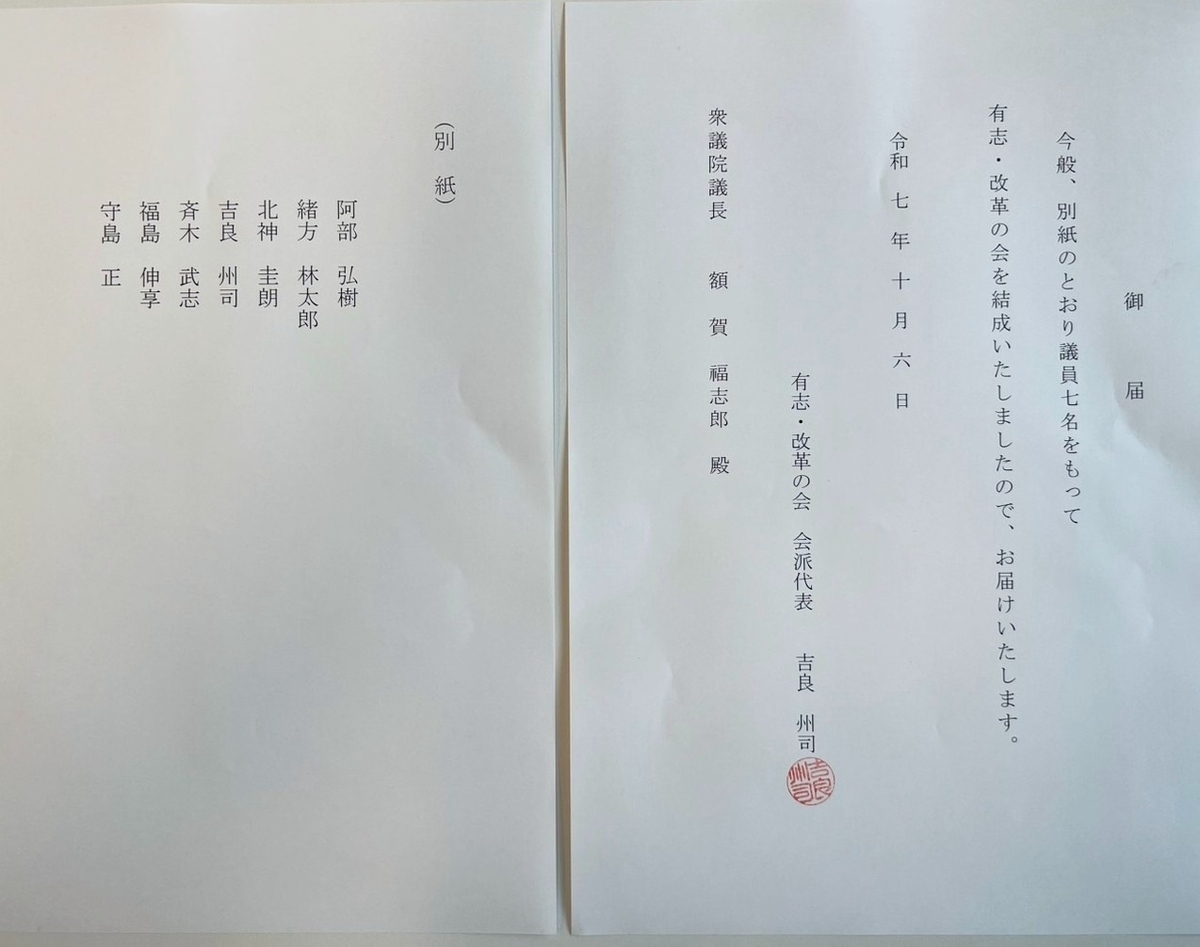 御 届
今般、別紙のとおり議員七名をもって
有志・改革の会を結成いたしましたので、お届けいたします。
令和 七 年 十 月 六 日
有志・改革の会 会派代表 吉良 州司
吉良州司
衆議院議長 額 賀 福志郎 殿
(別 紙)
阿部 弘樹
緒方 林太郎
北神 圭朗
吉良 州司
斉木 武志
福島 伸享
守島 正